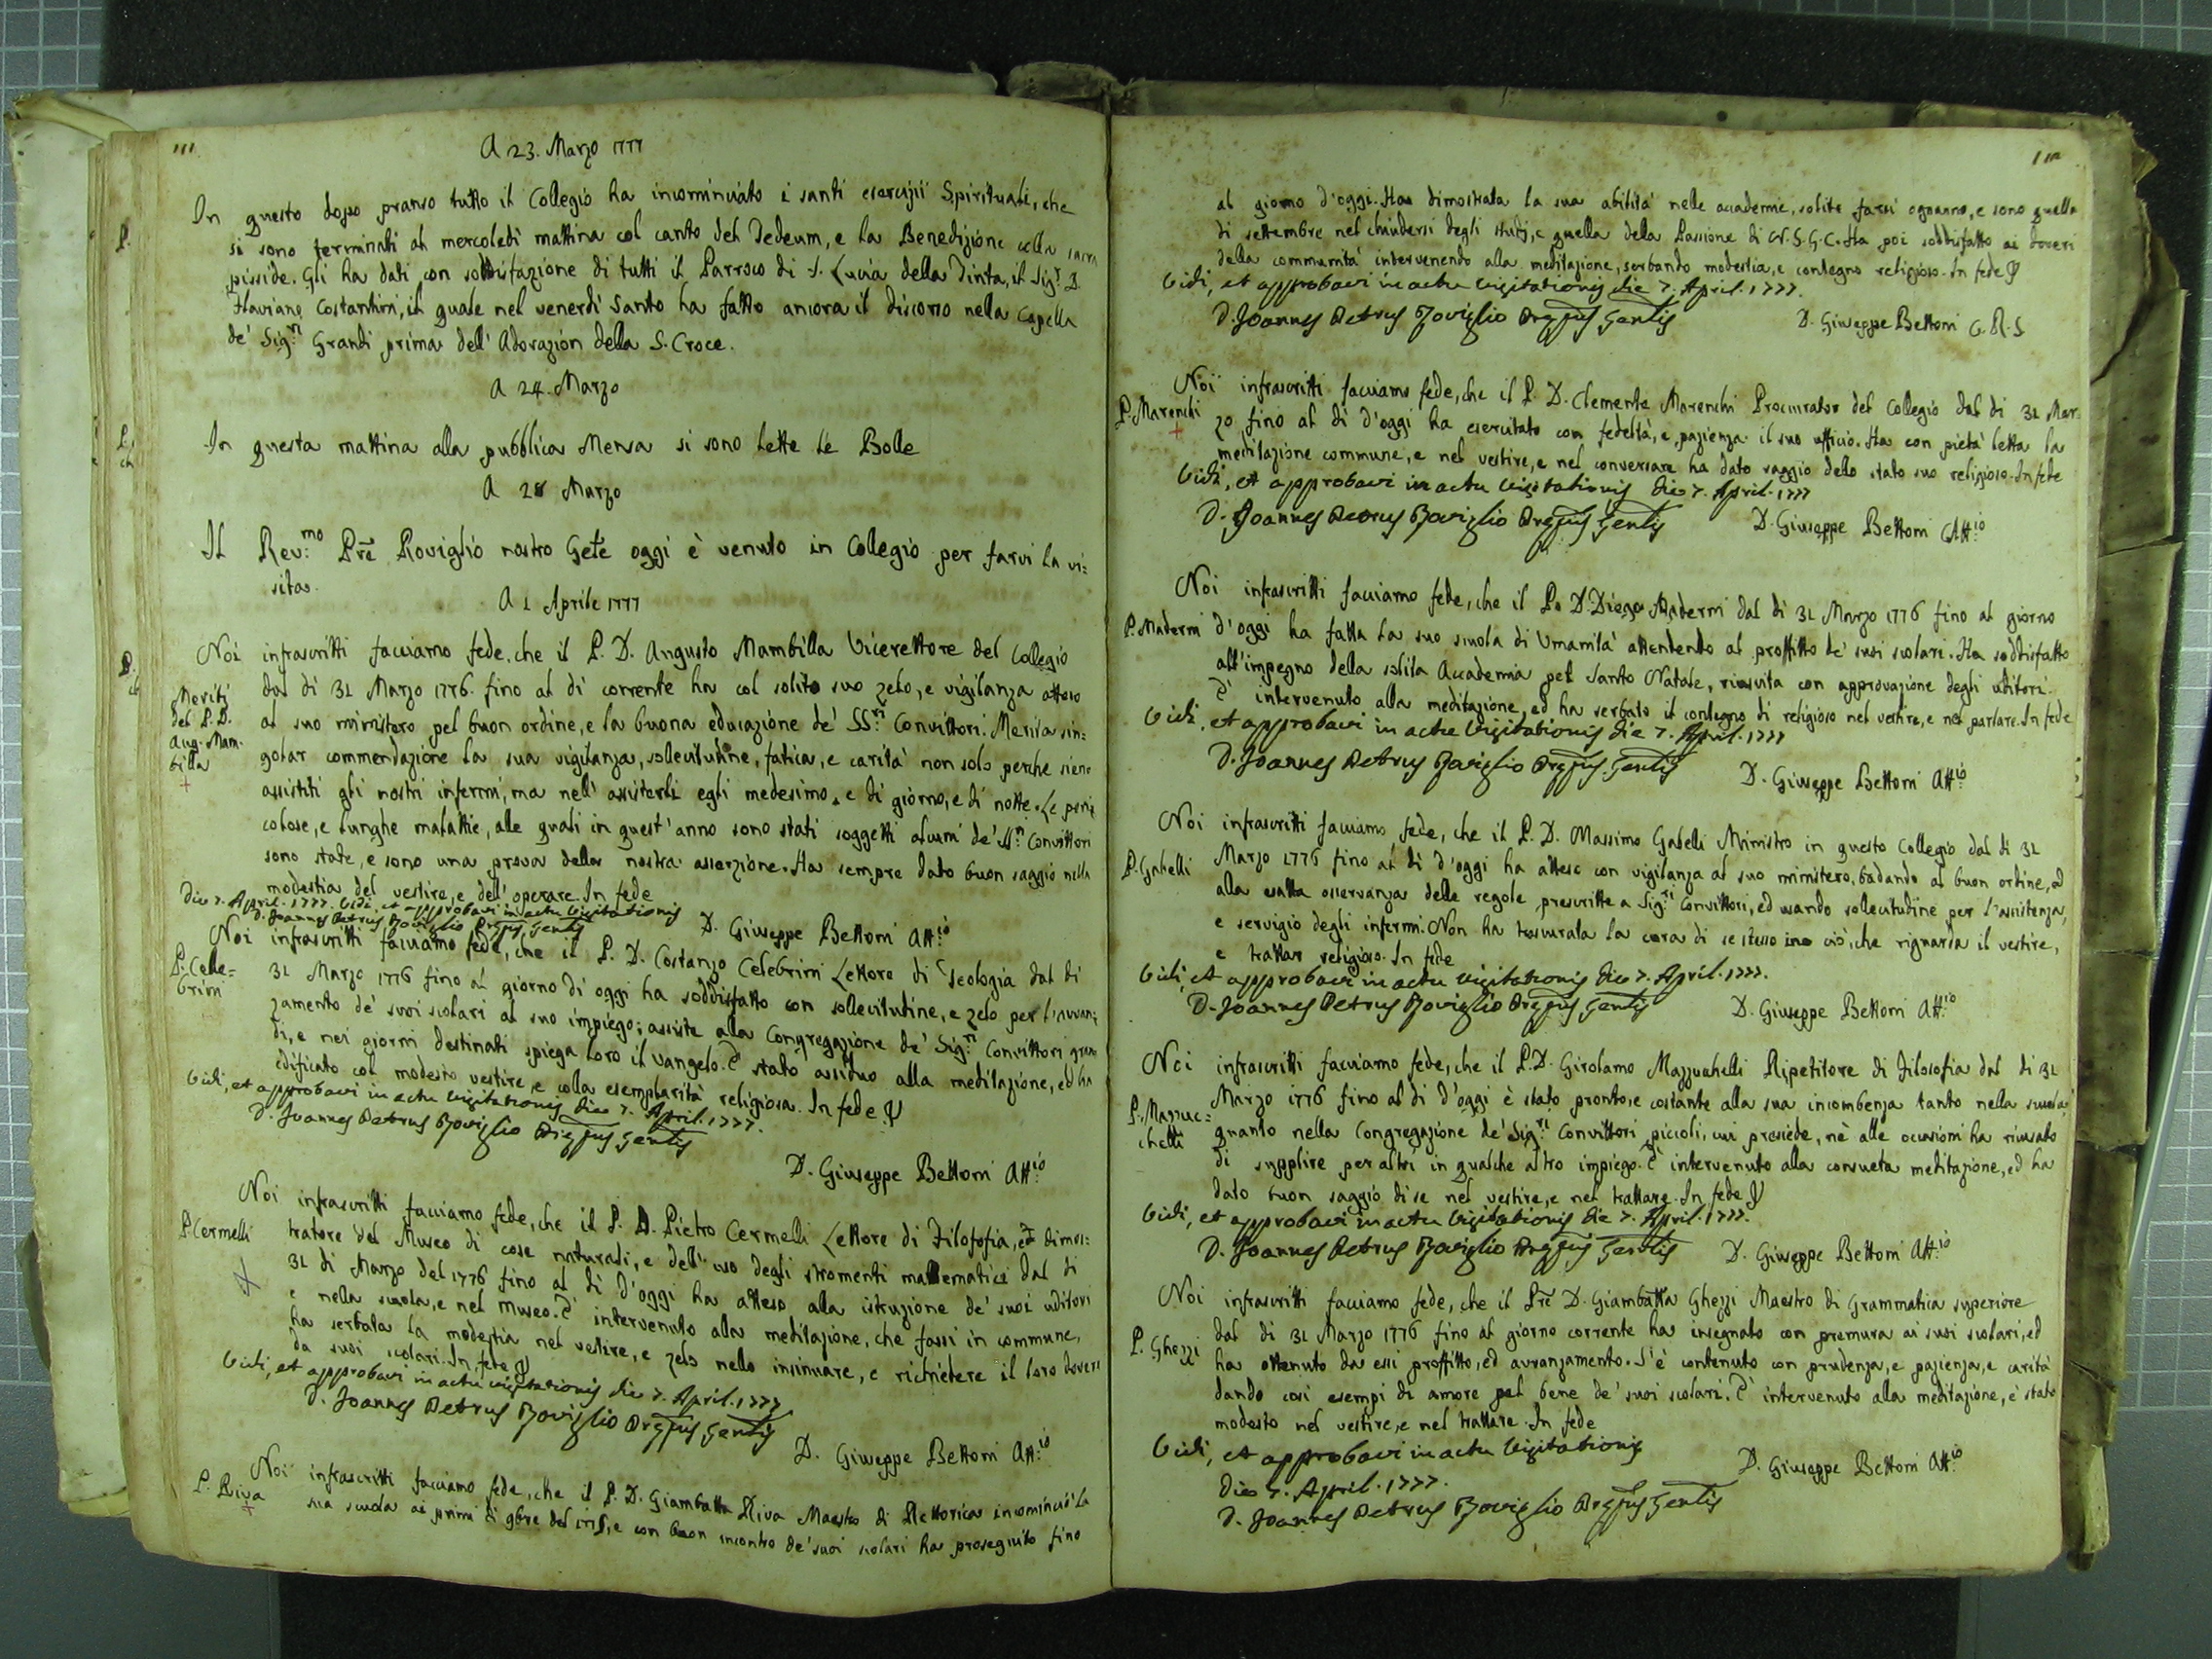 111
A 23. Marzo 1777
In questo dopo pranso tutto il Collegio ha incominciato i santi esercizii Spirituali, che
P.
si sono terminati al mercoledì mattina col canto del Tedeum, e la Benedizione colla sacra
pisside. Gli ha dati con soddisfazione di tutti il Parroco di S. Lucia della Tinta, il Sig.r D.
Flaviano Costantini, il quale nel venerdì Santo ha fatto ancora il discorso nella Capella
de' Sig.ri Grandi prima dell' Adorazion della S. Croce.
A 24. Marzo
In questa mattina alla pubblica Mensa si sono lette le Bolle
A 28 Marzo
Il Rev.mo Pre Roviglio nostro Gele oggi è venuto in Collegio per farvi la vi=
sita.
A 1 Aprile 1777
Noi infrascritti facciamo fede, che il P. D. Augusto Mambilla Vicerettore del Collegio
Meriti
del P. D.
Aug. Mam=
billa
+
dal di 31 Marzo 1776. fino al di corrente ha col solito suo zelo, e vigilanza atteso
al suo ministero pel buon ordine, e la buona educazione de' SS.ri Convittori. Merita sin=
golar commendazione la sua vigilanza, sollecitudine, fatica, e carità non solo perche siene
assistiti gli nostri infermi, ma nell' assisterli egli medesimo, e di giorno, e di notte. Le peri=
colose, e lunghe malattie, alle quali in quest' anno sono stati soggetti alcuni de' SS.ri Convittori
sono state, e sono una prova della nostra asserzione. Ha sempre dato buon saggio nella
modestia del vestire, e dell' operare. In fede
Die 7. April. 1777. Vidi, et approbavi in actu Visitationis
D. Joannes Petrus Roviglio Præpus Genlis
D. Giuseppe Bettoni Att.io
Noi infrascritti facciamo fede, che il P. D. Costanzo Celebrini Lettore di Teologia dal di
P. Cele=
brini
31 Marzo 1776 fino al giorno di oggi ha soddisfatto con sollecitudine, e zelo per l'avvan=
zamento de' suoi scolari al suo impiego; assiste alla Congregazione de' Sig.ri Convittori gran
di, e nei giorni destinati spiega loro il Vangelo. È stato assiduo alla meditazione, ed ha
edificato col modesto vestire, e colla esemplarità religiosa. In fede
Vidi, et approbavi in actu Visitationis die 7. April. 1777.
D. Joannes Petrus Roviglio Præpus Genlis
D. Giuseppe Bettoni Att.io
Noi infrascritti facciamo fede, che il P. D. Pietro Cermelli Lettore di Filosofia, ed dimos=
P. Cermelli
tratore del Museo di cose naturali, e dell' uso degli stromenti mattematici dal di
31 di Marzo del 1776 fino al di d'oggi ha atteso alla istruzione de' suoi uditori
e nella scuola, e nel Museo. È intervenuto alla meditazione, che fassi in commune,
ha serbata la modestia nel vestire, e zelo nello insinuare, e richiedere il loro dovere
da suoi scolari. In fede
Vidi, et approbavi in actu visitationis die 7. April. 1777
D. Joannes Petrus Roviglio Præpus Genlis
D. Giuseppe Bettoni Att.io
Noi infrascritti facciamo fede, che il P. D. Giambatta Riva Maestro di Rettorica incominciò la
P. Riva
+
sua scuola ai primi di 9bre del, e con buon incontro de' suoi scolari ha proseguito fino
112
al giorno d'oggi. Ha dimostrata la sua abilità nelle accademie, solite farsi ognanno, e sono quella
di settembre nel chiudersi degli studj, e quella della Passione di N. S. G. C. Ha poi soddisfatto ai doveri
della communità intervenendo alla meditazione, serbando modestia, e contegno religioso. In fede
Vidi, et approbavi in actu Visitationis die 7. April. 1777.
D. Joannes Petrus Roviglio Præpus Genlis
D. Giuseppe Bettoni C. R. S.
Noi infrascritti facciamo fede, che il P. D. Clemente Marenchi Procurator del Collegio dal di 31 Mar=
P. Marenchi
+
zo fino al di d'oggi ha esercitato con fedeltà, e, pazienza il suo ufficio. Ha con pietà letta la
meditazione commune, e nel vestire, e nel conversare ha dato saggio dello stato suo religioso. In fede
Vidi, et approbavi in actu Visitationis die 7. April. 1777
D. Joannes Petrus Roviglio Præpus Genlis
D. Giuseppe Bettoni Att.io
Noi infrascritti facciamo fede, che il P. D. Diego Maderni dal di 31 Marzo 1776 fino al giorno
P. Maderni
d'oggi ha fatta la sua scuola di Umanità attendendo al proffitto de' suoi scolari. Ha soddisfatto
all'impegno della solita Accademia pel Santo Natale, riuscita con approvazione degli uditori.
È intervenuto alla meditazione, ed ha serbato il contegno di religioso nel vestire, e nel parlare. In fede
Vidi, et approbavi in actu Visitationis die 7. April. 1777
D. Joannes Petrus Roviglio Præpus Genlis
D. Giuseppe Bettoni Att.io
Noi infrascritti facciamo fede, che il P. D. Massimo Gabelli Ministro in questo Collegio dal di 31
P. Gabelli
Marzo 1776 fino al di d'oggi ha atteso con vigilanza al suo ministero, badando al buon ordine, ed
alla esatta osservanza delle regole prescritte a Sig.ri Convittori, ed usando sollecitudine per l'assistenza,
e servigio degli infermi. Non ha trascurata la cura di se stesso in ciò, che riguarda il vestire,
e trattar religioso. In fede
Vidi, et approbavi in actu Visitationis die 7. April. 1777.
D. Joannes Petrus Roviglio Præpus Genlis
D. Giuseppe Bettoni Att.io
Noi infrascritti facciamo fede, che il P. D. Girolamo Mazzucchelli Ripetitore di Filosofia dal di 31
P. Mazzuc=
chelli
Marzo 1776 fino al di d'oggi è stato pronto, e costante alla sua incombenza tanto nella scuola,
quanto nella Congregazione de' Sig.ri Convittori piccioli, cui presiede, nè alle occasioni ha ricusato
di supplire per altri in qualche altro impiego. È intervenuto alla consueta meditazione, ed ha
dato buon saggio di se nel vestire, e nel trattare. In fede
Vidi, et approbavi in actu Visitationis die 7. April. 1777.
D. Joannes Petrus Roviglio Præpus Genlis
D. Giuseppe Bettoni Att.io
Noi infrascritti facciamo fede, che il Pre D. Giambatta Ghezzi Maestro di Grammatica superiore
P. Ghezzi
dal di 31 Marzo 1776 fino al giorno corrente ha insegnato con premura ai suoi scolari, ed
ha ottenuto da essi proffitto, ed avvanzamento. S'è contenuto con prudenza, e pazienza, e carità
dando così esempi di amore pel bene de' suoi scolari. È intervenuto alla meditazione, è stato
modesto nel vestire, e nel trattare. In fede
Vidi, et approbavi in actu Visitationis
Die 7. April. 1777.
D. Giuseppe Bettoni Att.io
D. Joannes Petrus Roviglio Præpus Genlis